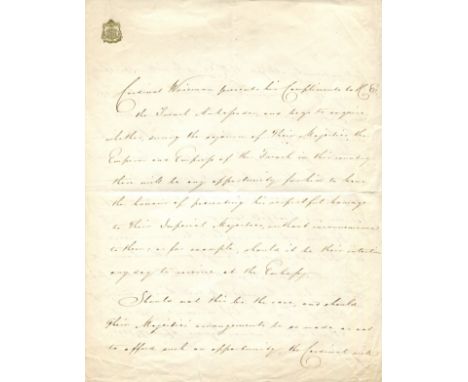 Cardinal Wiseman presents his Compliments to H. E.
the French Ambassador, and begs to enquire
whether, during the sojourn of Their Majesties, the
Emperor and Empress of the French in this country
there will be any opportunity for him to have
the honour of presenting his respectful homage
to Their Imperial Majesties, without inconvenience
to them; as for example, should it be their intention
any day to receive at the Embassy.
Should not this be the case, and should
Their Majesties' arrangements be so made as not
to afford such an opportunity, the Cardinal will